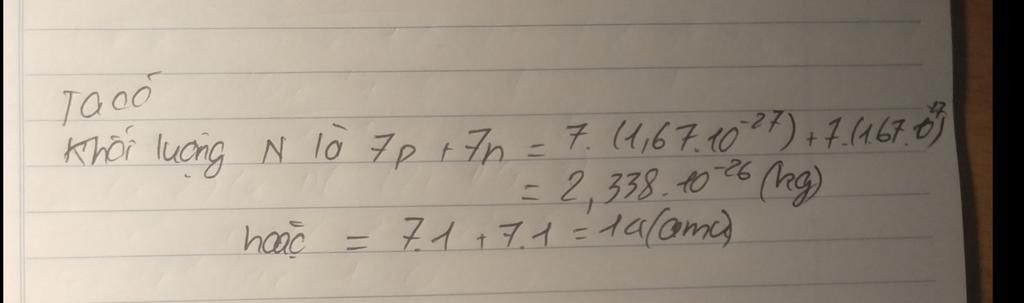 Ta có
Khối lượng N là 7p + 7n = 7.(1,67.10⁻²⁷) + 7.(1.67.10⁻²⁷)
= 2,338.10⁻²⁶ (kg)
hoặc = 7.1 + 7.1 = 14(amu)